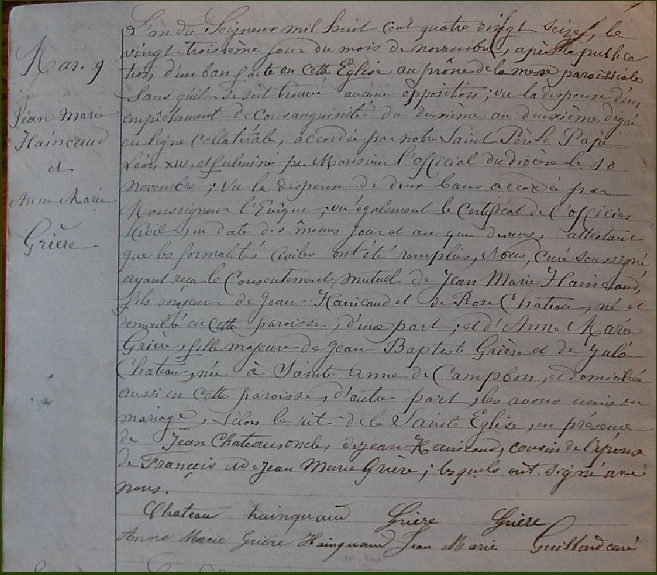 Mar. 9
Jean Marie
Haincaud
et
Anne Marie
Grière
L'an du Seigneur mil huit cent quatre vingt seize, le
vingt-troisième jour du mois de novembre, après la publica
tion d'un ban faite en cette Eglise au prône de la messe paroissiale
sans qu'il se soit trouvé aucune opposition; vu la dispense d'un
empêchement de consanguinité du deuxième au deuxième degré
en ligne collatérale, accordée par notre Saint Père le Pape
Léon XIII, et fulminée par Monsieur l'official du diocèse le 10
novembre; vu la dispense de deux bans accordé par
Monseigneur l'Evêque; vu également le certificat de l'officier
civil, en date des mêmes jour et an que dessus, attestant
que les formalités civiles ont été remplies, Nous, Curé soussigné
ayant reçu le Consentement mutuel de Jean Marie Haincaud,
fils majeur de Jean Haincaud et de Rose Château, né et
domicilié en cette paroisse, d'une part; et d'Anne Marie
Grière, fille majeure de Jean Baptiste Grière et de Julie
Château, née à Sainte Anne de Campbon, et domiciliée
aussi en cette paroisse, d'autre part, les avons unis en
mariage, selon le rit de la Sainte Eglise, en présence
de Jean Château, oncle, de Jean Haincaud, cousin de l'époux
de François et de Jean Marie Grière; lesquels ont signé avec
nous.
Chateau hainquaud Grière Grière
Anne Marie Grière Hainquaud Jean Marie Guillard curé